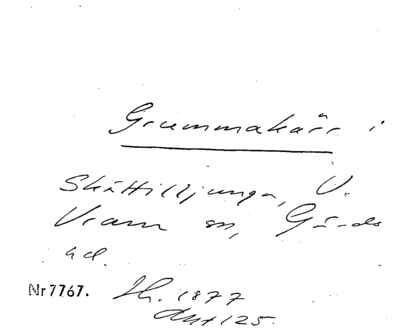 Grummakärr i
Skättilljunga, V.
Vram sn, Gärds
hd.
Nr 7767. Th. 1877
Ant 125.